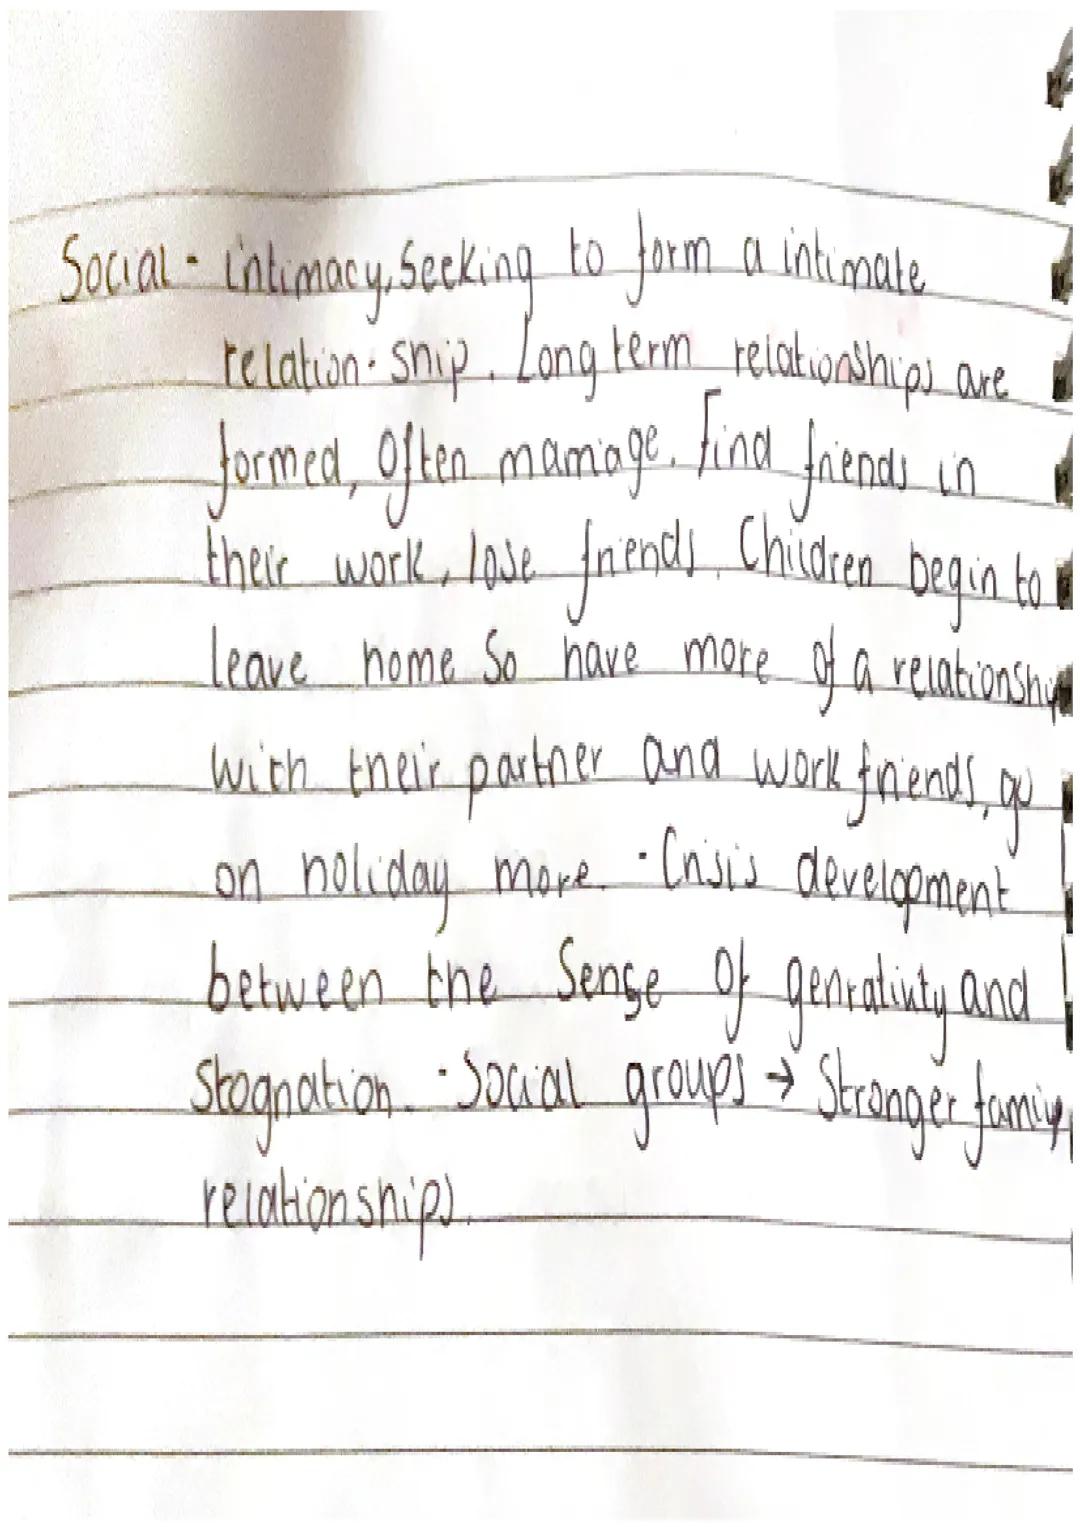 Social - intimacy, Seeking to form a intimate
relation-ship. Long term relationships are
formed, Often marriage. Find friends in
their work, lose friends. Children begin to
leave home So have more of a relationship
with their partner and work friends, go
on holiday more. · Crisis development
between the Sense of genrativity and
Stagnation. · Social groups → Stronger family
relationships.